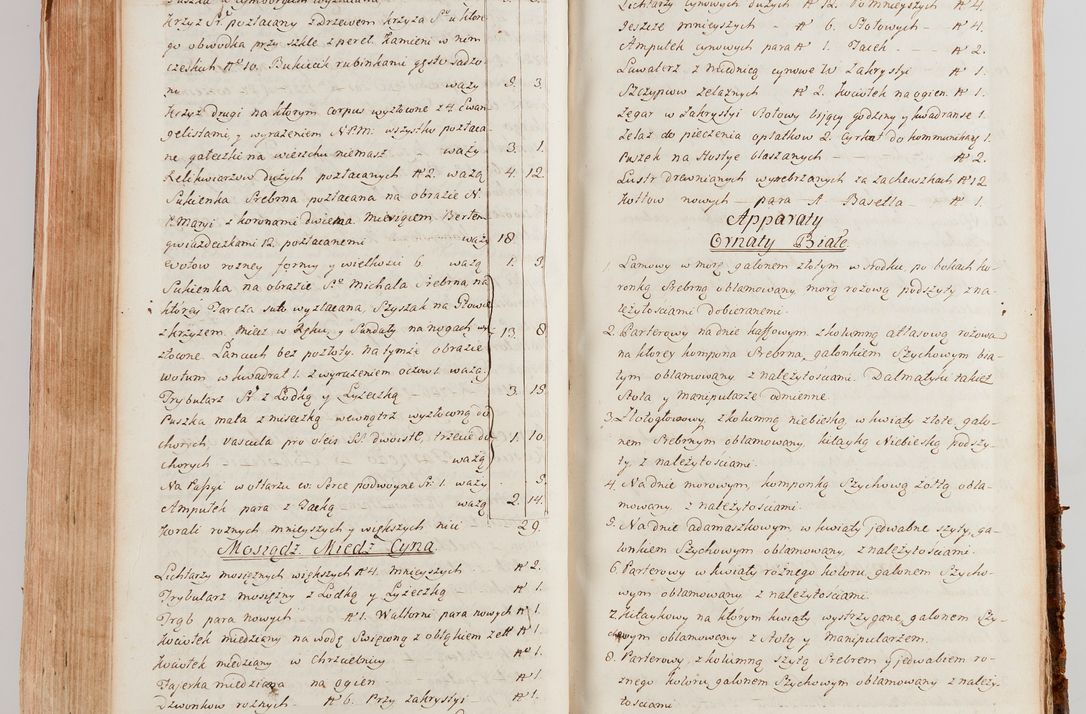 Krzyż Sr. pozłacany z drzewem krzyża Sgo u które
go obwodka przy szkle z pereł. Kamieni w nim
czeskich No 10. Bukiecik rubinkami gęsto sadzo
ny waży 9. 3.
Krzyż drugi na ktorym corpus wyzłocone z 4. Ewan
gelistami, y wyrażeniem N.P.M. wszystko pozłaca
ne gałeczki na wierzchu niemasz waży 3. 1.
Relikwiarzow dużych pozłacanych No 2. ważą 4. 12.
Sukienka Srebrna pozłacana na obrazie N.
P. Maryi z koronami dwiema Miesiącem Berłem
gwiazdeczkami 12. pozłacanemi waży 18
Wotow rozney formy y wielkości 6. ważą 1. 3.
Sukienka na obrazie Sgo Michała Srebrna na
ktorey Tarcza suto wyzłacana, Szyszak na Głowie
z krzyżem, miecz w Ręku, y Sandały na nogach wy
złocone. Lancuch bez pozłoty. Na tymże obrazie 13. 8.
wotum w kwadrat 1. z wyrażeniem oczow 1. ważą
Trybularz Sr. z Lodką y Lyżeczką 3. 15.
Puszka mała z miseczką wewnątrz wyzłoconą do
chorych vascula pro oleis Scis dwoiste, trzecie do 1. 10.
chorych ważą
Na Passyi w ołtarzu w. Serce podwoyne Sr. 1. waży 3.
Ampułek para z Tacką ważą 2. 14.
Korali rożnych mnieyszych y większych nici 29.
Mosiądz Miedź Cyna
Lichtarzy mosiężnych większych No 4. mnieyszych No 2.
Trybularz mosiężny z Lodką y Lyżeczką No 1.
Trąb para nowych No 1. Waltorni para nowych No 1.
Kociołek miedziany na wodę Swięconą z obłąkiem żel. No 1.
Kociołek miedziany w chrzcielnicy No 1.
Fajerka miedziana na ogien No 1.
Dzwonkow rożnych No 6. Przy zakrystyi No 1.
Lichtarzy cynowych dużych No 12. Pomnieyszych No 4.
Jeszcze mnieyszych No 6. Stołowych No 4.
Ampułek cynowych para No 1. Tacek No 2.
Lawaterz z miednicą cynowe w Zakrystyi No 1.
Szczypcow żelaznych No 2. Kociołek na ogien No 1.
Zegar w Zakrystyi Stołowy biący godziny y kwadranse 1.
Zelaz do pieczenia opłatkow 2. Cyrkuł do kommunikacy 1.
Puszek na Hostye blaszanych No 2.
Lustr drewnianych wysrebrzanych za zacheuszkach No 12
Kotłow nowych para A Basetla No 1.
Apparaty
Ornaty Białe
1. Lamowy w morę galonem złotym w srodku, po bokach ko
ronką Srebrną obłamowany, morą rożową podszyty z na
leżytościami dobieranemi.
2. Parterowy na dnie kaffowym, z kolumną atłasową rożowa
na ktorey kompona Srebrna, galonkiem Szychowym bia
łym obłamowany z należytościami. Dalmatyki takież
Stoła y manipularze odmienne.
3. Złotogłowowy, z kolumną niebieską, w kwiaty złote, galo
nem Srebrnym obłamowany, kitayką Niebieską podszy
ty, z należytościami.
4. Na dnie morowym, komponką Szychową żołtą obła
mowany, z należytościami.
5. Na dnie adamaszkowym, w kwiaty jedwabne szyty, ga
lonkiem Szychowym obłamowany, z należytościami.
6. Parterowy w kwiaty rożnego koloru, galonem Szycho
wym obłamowany z należytościami.
7. Kitaykowy na ktorym kwiaty wystrzygane, galonem Szy
chowym obłamowany z Stołą y Manipularzem.
8. Parterowy, z kolumną szytą Srebrem y jedwabiem ro
żnego koloru, galonem Szychowym obłamowany z należy
tościami